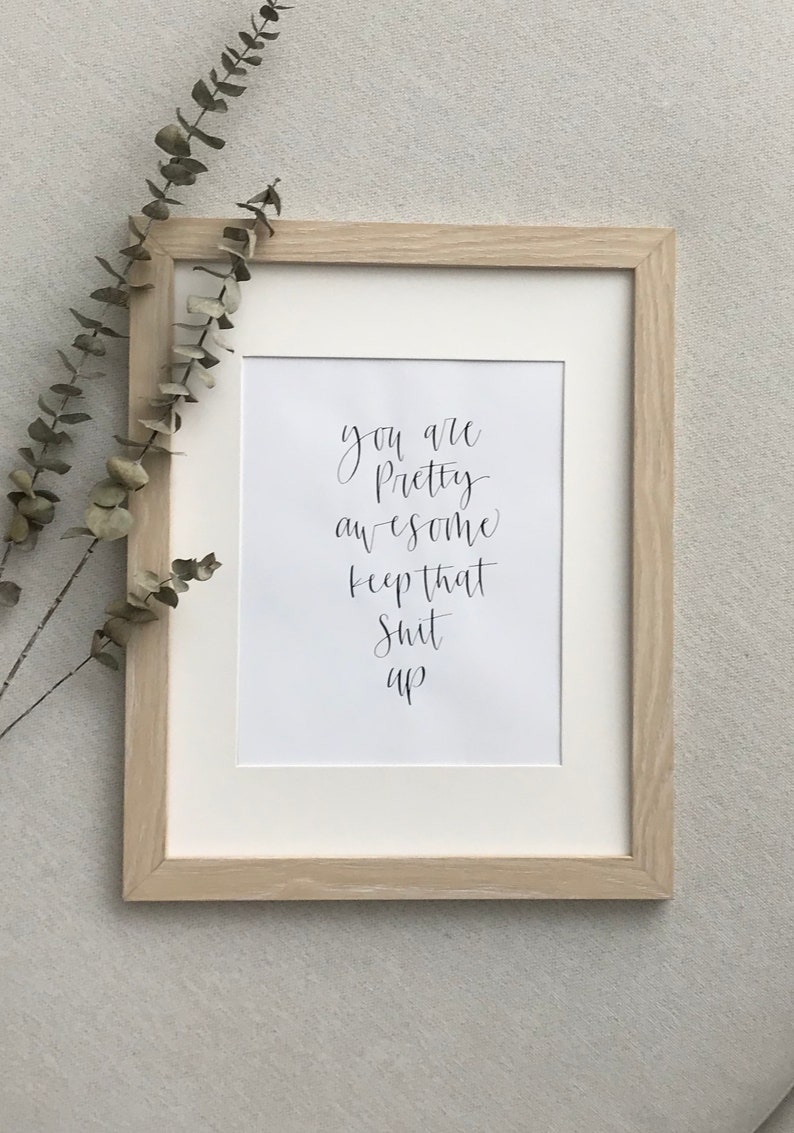 you are
pretty
awesome
keep that
shit
up